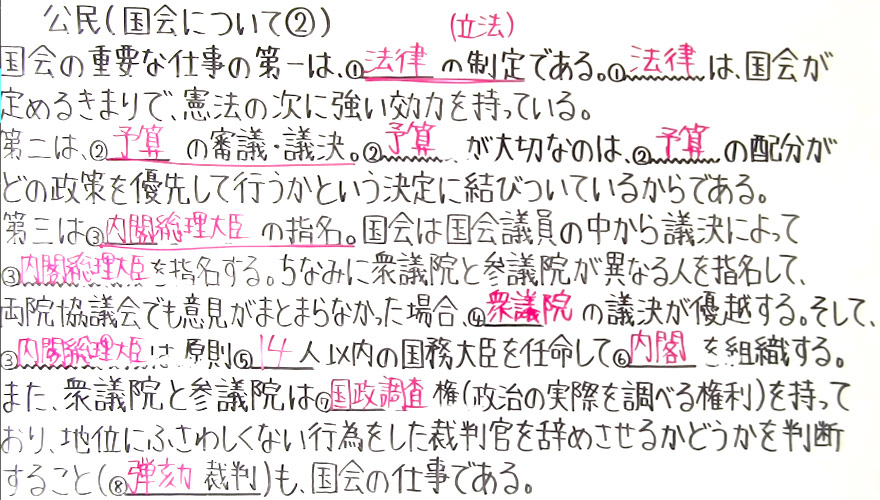 公民(国会について②) (立法)
国会の重要な仕事の第一は、①法律 の制定である。①法律は、国会が
定めるきまりで、憲法の次に強い効力を持っている。
第二は、②予算 の審議・議決。②予算 が大切なのは、②予算の配分が
どの政策を優先して行うかという決定に結びついているからである。
第三は③内閣総理大臣 の指名。国会は国会議員の中から議決によって
③内閣総理大臣を指名する。ちなみに衆議院と参議院が異なる人を指名して、
両院協議会でも意見がまとまらなかった場合、④衆議院 の議決が優越する。そして、
③内閣総理大臣は原則⑤14人以内の国務大臣を任命して⑥内閣 を組織する。
また、衆議院と参議院は⑦国政調査 権(政治の実際を調べる権利)を持って
おり、地位にふさわしくない行為をした裁判官を辞めさせるかどうかを判断
すること(⑧弾劾 裁判)も、国会の仕事である。